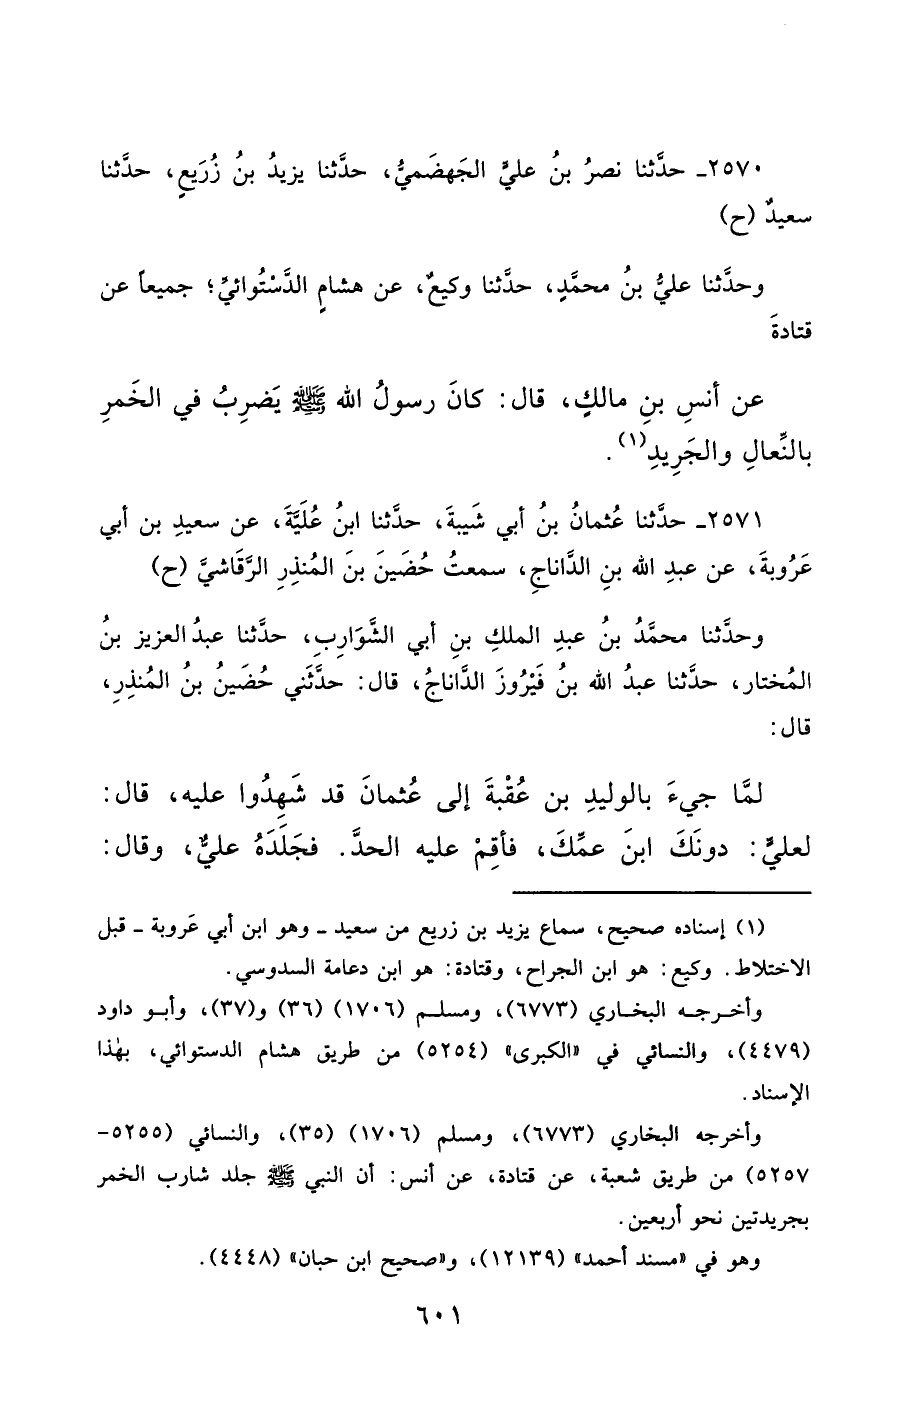 ٢٥٧٠ـ حدَّثنا نصرُ بنُ عليٍّ الجَهضَميُّ، حدَّثنا يزيدُ بنُ زُرَيعٍ، حدَّثنا
سعيدٌ (ح)
وحدَّثنا عليُّ بنُ محمَّدٍ، حدَّثنا وكيعٌ، عن هشامٍ الدَّسْتُوائيِّ؛ جميعاً عن
قتادةَ
عن أنسِ بنِ مالكٍ، قال: كانَ رسولُ الله ﷺ يَضرِبُ في الخَمرِ
بالنِّعالِ والجَرِيدِ(١).
٢٥٧١ـ حدَّثنا عُثمانُ بنُ أبي شَيبةَ، حدَّثنا ابنُ عُلَيَّةَ، عن سعيدِ بن أبي
عَرُوبةَ، عن عبدِ الله بنِ الدَّاناجِ، سمعتُ حُضَينَ بنَ المُنذِرِ الرَّقَاشيَّ (ح)
وحدَّثنا محمَّدُ بنُ عبدِ الملكِ بنِ أبي الشَّوَارِبِ، حدَّثنا عبدُ العزيز بنُ
المُختار، حدَّثنا عبدُ الله بنُ فَيْرُوزَ الدَّاناجُ، قال: حدَّثَني حُضَينُ بنُ المُنذِرِ،
قال:
لمَّا جيءَ بالوليدِ بن عُقْبةَ إلى عُثمانَ قد شَهِدُوا عليه، قال:
لعليٍّ: دونَكَ ابنَ عمِّكَ، فأقِمْ عليه الحدَّ. فجَلَدَهُ عليٌّ، وقال:
(١) إسناده صحيح، سماع يزيد بن زريع من سعيد ـ وهو ابن أبي عَروبة ـ قبل
الاختلاط. وكيع: هو ابن الجراح، وقتادة: هو ابن دعامة السدوسي.
وأخرجه البخاري (٦٧٧٣)، ومسلم (١٧٠٦) (٣٦) و(٣٧)، وأبو داود
(٤٤٧٩)، والنسائي في «الكبرى» (٥٢٥٤) من طريق هشام الدستوائي، بهٰذا
الإسناد.
وأخرجه البخاري (٦٧٧٣)، ومسلم (١٧٠٦) (٣٥)، والنسائي (٥٢٥٥-
٥٢٥٧) من طريق شعبة، عن قتادة، عن أنس: أن النبي ﷺ جلد شارب الخمر
بجريدتين نحو أربعين.
وهو في «مسند أحمد» (١٢١٣٩)، و«صحيح ابن حبان» (٤٤٤٨).
٦٠١